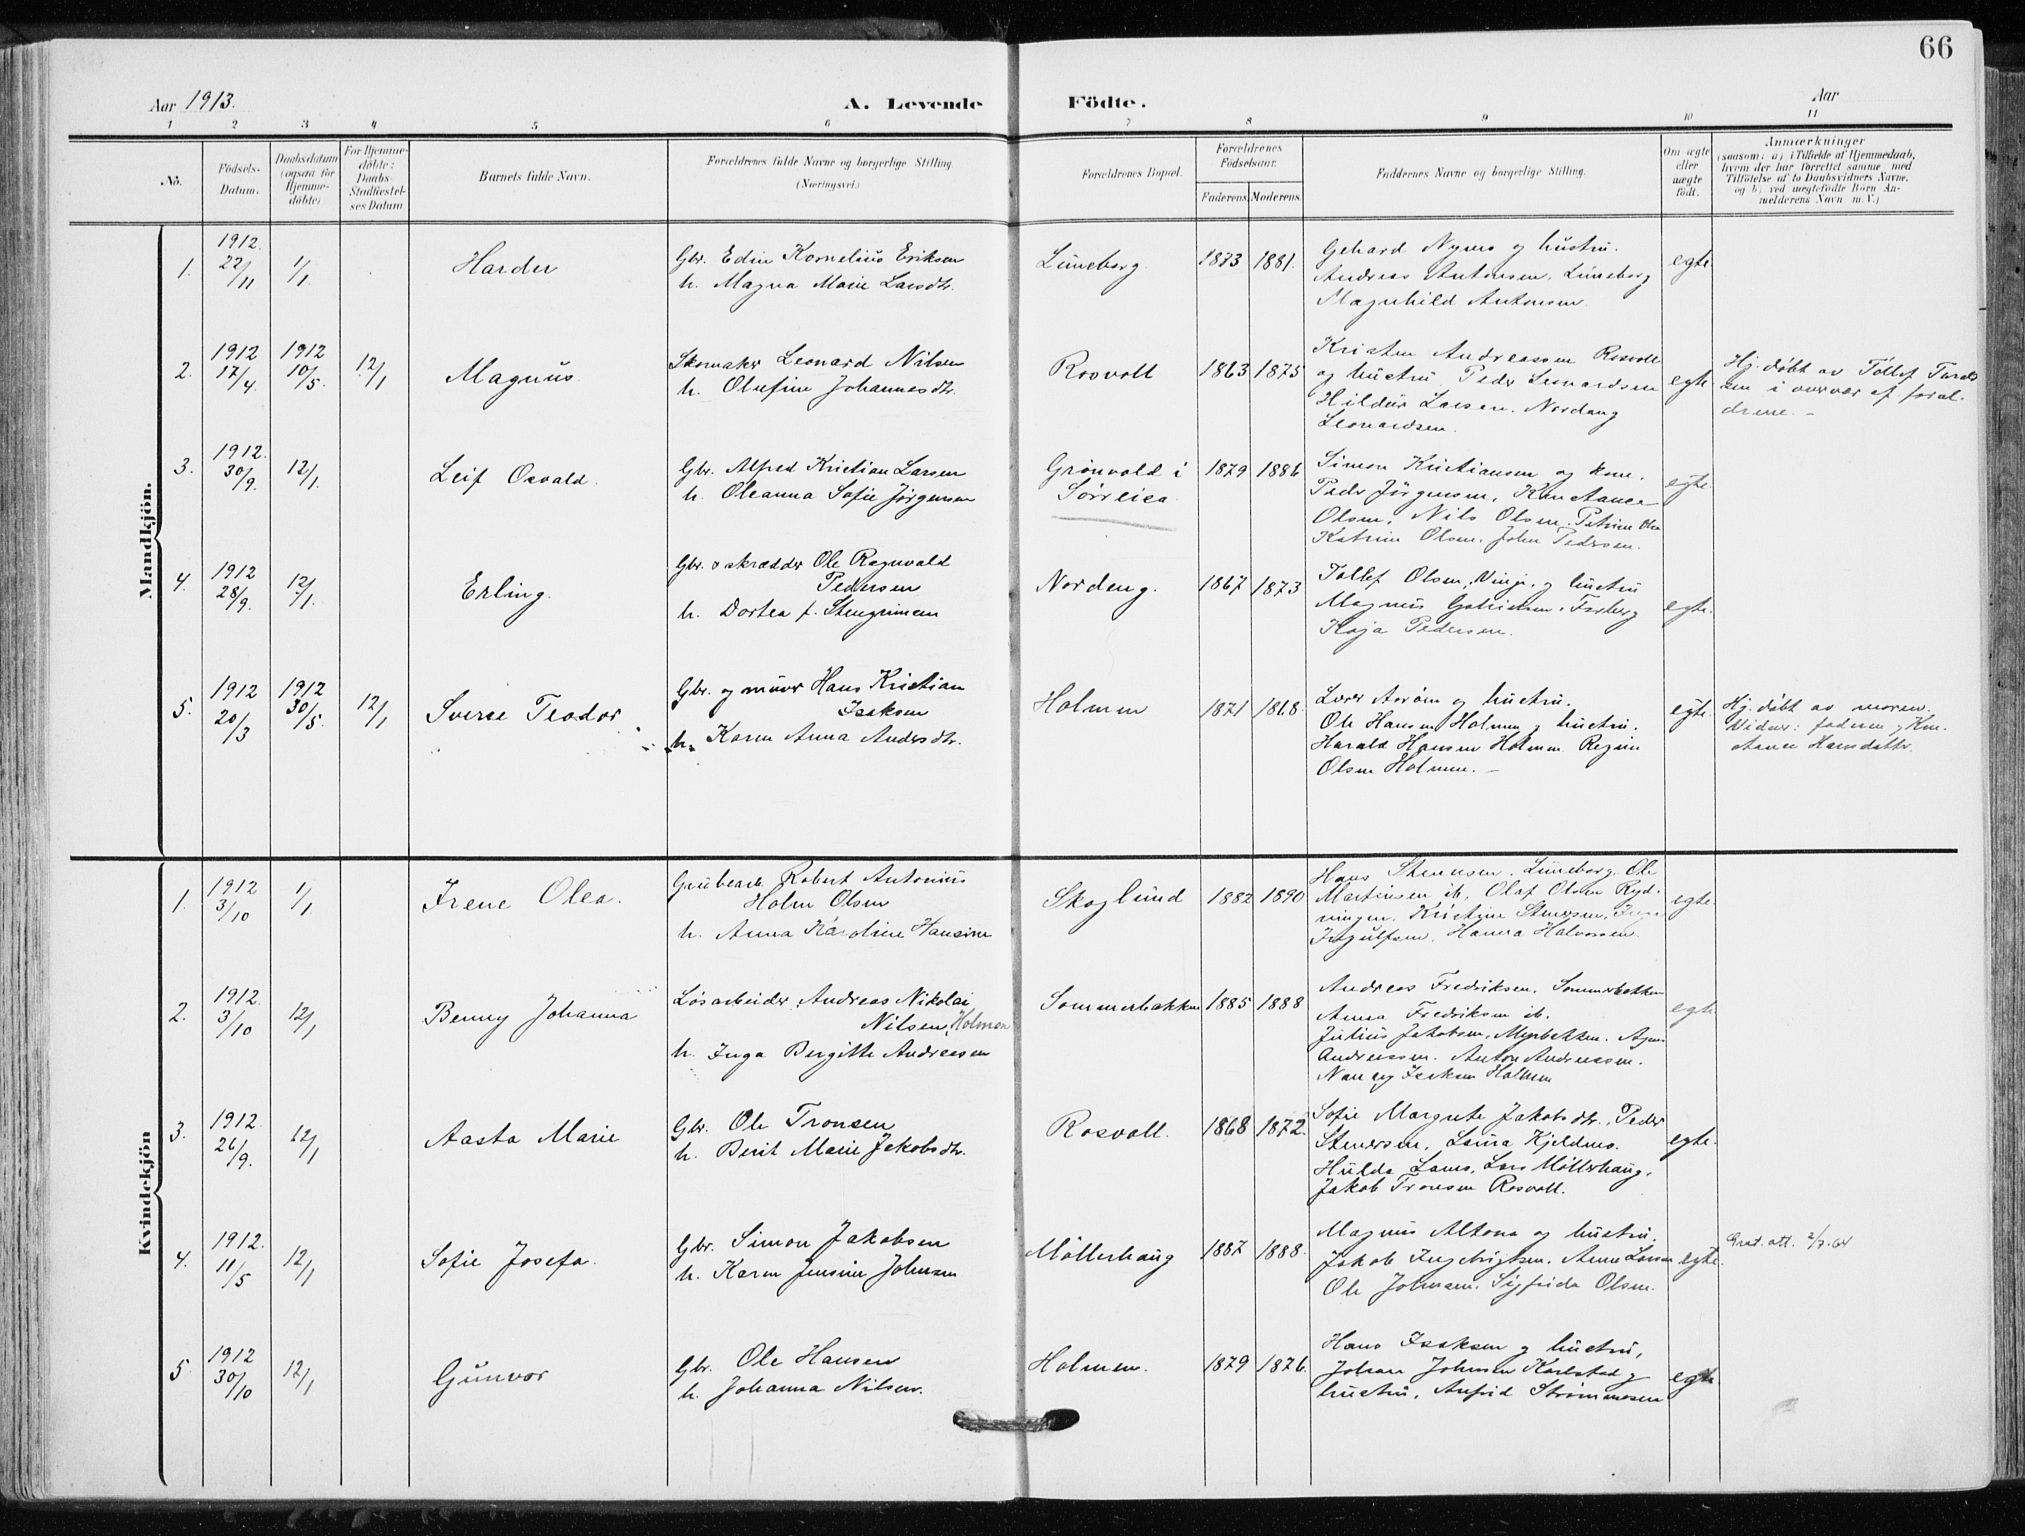 66
Aar 1913.
A. Levende Födte.
Aar
1 2 3 4 5 6 7 8 9 10 11
No.
Födsels-Datum.
Daabsdatum (ogsaa for Hjemme-döbte)
For Hjemme-döbte: Daabs-Stadfæstel-ses Datum
Barnets fulde Navn.
Forældrenes fulde Navne og borgerlige Stilling. (Næringsvei.)
Forældrenes Bopæl.
Forældrenes Födselsaar.
Faderens. Moderens.
Faddernes Navne og borgerlige Stilling.
Om ægte eller uægte födt.
Anmærkninger
(saasom: a) i Tilfælde af Hjemmedaab,
hvem der har forrettet samme med
Tilföielse af to Daabsvidners Navne.
og b) ved uægtefödte Börn An-
melderens Navn m. V.)
Mandkjön.
1. 1912. 22/11 1/1
Harder
Gbr. Edin Kornelius Eriksen
h. Magna Marie Larsdtr.
Luneborg. 1873 1881.
Gehard Nymo og hustru.
Andreas Antonsen, Luneborg
Magnhild Antonsen
egte.
2. 1912 17/4. 1912 10/5. 12/1
Magnus.
Skomaker Leonard Nilsen
h. Olufine Johannesdtr.
Rosvoll 1863 1875
Kristen Andreassen Rosvoll
og hustru. Peder Leonardsen
Hildur Larsen. Nordang
Leonardsen.
egte.
Hj. döbt av Tollef
i overvær af foræl-
drene. -
3. 1912. 30/9. 12/1.
Leif Osvald.
Gbr. Alfred Kristian Larsen
h. Oleanna Sofie Jörgensen
Grönvold i
Sörreisa.
1879 1886
Simon Kristiansen og kone.
Peder Jörgensen, Konstance
Olsen, Nils Olsen. Petrine Olsen
Katrine Olsen. John Pedersen.
egte.
4. 1912 28/9. 12/1.
Erling.
Gbr. o skrædder Ole Ragnvald
Pedersen
h. Dortea f. Stengrimsen
Nordeng. 1867 1873
Tollef Olsen, Vinje, og hustru
Magnus Gabrielsen. Forberg
Kaja Pedersen.
egte.
5. 1912 20/3 1912 30/5. 12/1
Sverre Teodor
Gbr. og murer Hans Kristian
Isaksen
h. Karen Anna Andersdtr.
Holmen 1871 1868.
Lærer Aaröen og hustru.
Ole Hansen Holmen og hustru.
Harald Hansen Holmen Regine
Olsen Holmen. -
egte.
Hj. döbt av moren.
Vidner: faderen og Kon-
stance Hansdatter.
Kvindekjön
1. 1912 3/10 1/1
Irene Olea.
Grubearb. Robert Antonius
Holm Olsen
h. Anna Karoline Hansine
Skoglund 1882 1890
Hans Stenersen. Luneborg. Ole
Martinsen ib, Olaf Olsen Ryd-
ningen. Kristine Stenersen, Inga
Ingulfsen, Hanna Halvorsen.
egte.
2. 1912. 3/10 12/1
Benny Johanna
Lösarbeider Andreas Nikolai
Nilsen, Holmen
h. Inga Bergitte Andreassen
Sommerbakken 1885 1888
Andreas Fredriksen. Sommerbakken
Anna Fredriksen ib.
Julius Jakobsen, Myrbakken.
Andreassen. Anton Andreassen.
Nancy Isaksen Holmen
egte
3. 1912. 26/9. 12/1
Aasta Marie
Gbr. Ole Tronsen
h. Berit Marie Jakobsdtr.
Rosvoll. 1868 1872.
Sofie Margrete Jakobsdtr. Peder
Stenersen, Lovisa Kjeldmo.
Hulda Larss, Lars Möllerhaug,
Jakob Tronsen Rosvoll.
egte.
4. 1912. 11/5 12/1
Sofie Josefa.
Gbr. Simon Jakobsen
h. Karen Jensine Johnsen
Möllerhaug 1887 1888.
Magnus Altona og hustru.
Jakob Ingebrigtsen. Anne Larsen
Ole Johnsen. Sigfrida Olsen.
egte.
Grat. att. 2/7.64
5 1912 30/10 12/1
Gunvor
Gbr. Ole Hansen
h. Johanna Nilsen.
Holmen. 1879 1876.
Hans Isaksen og hustru,
Johan Johnsen Karlstad og
hustru, Anfrid Strömmesen
egte